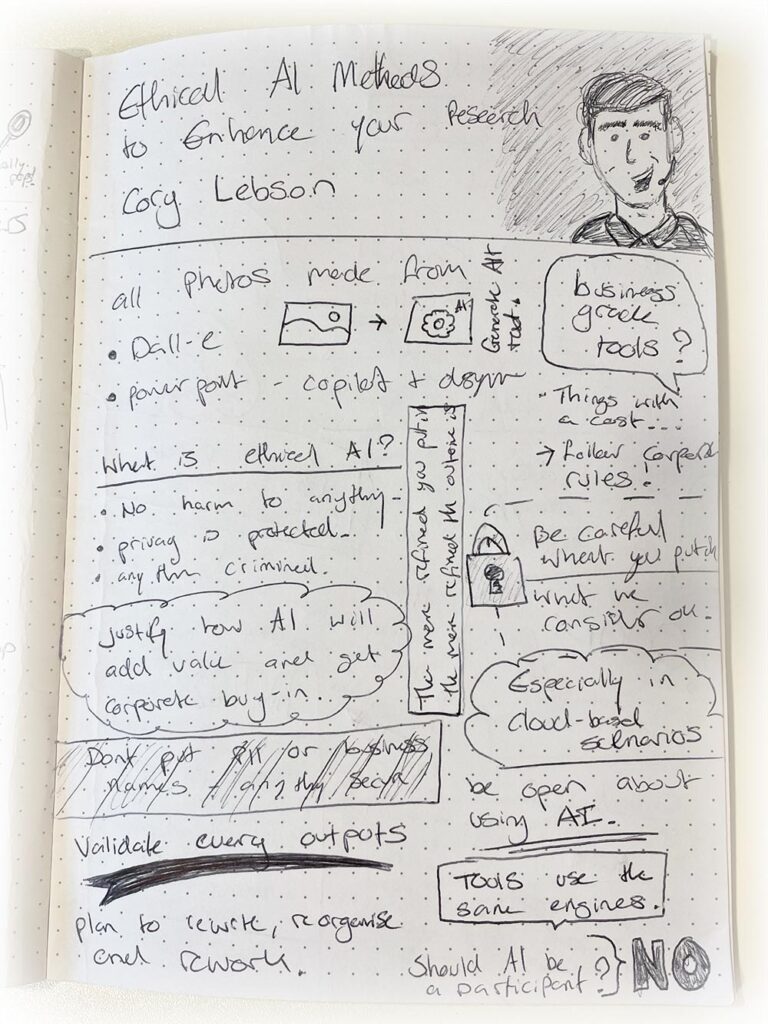 Ethical AI Methods
to Enhance your Research
Cory Lebson
all photos made from
• Dall-e
• powerpoint - copilot +
AI
Generate Alt
text.
business
grade
tools?
- Things with
a cost...
→ Follow Corporate
rules!
What is ethical AI?
• No harm to anything -
• privacy is protected.
• anythin criminal.
The more refined you put in
the more refined the outcome is
Be careful
what you put in
what we
consider ok.
justify how AI will
add value and get
corporate buy-in.
Especially in
cloud-based
scenarios
Dont put PII or business
names - anythi secur
be open about
using AI.
Validate every outputs
Tools use the
same engines.
plan to rewrite, reorganise
and rework.
Should AI be
a participant? } NO